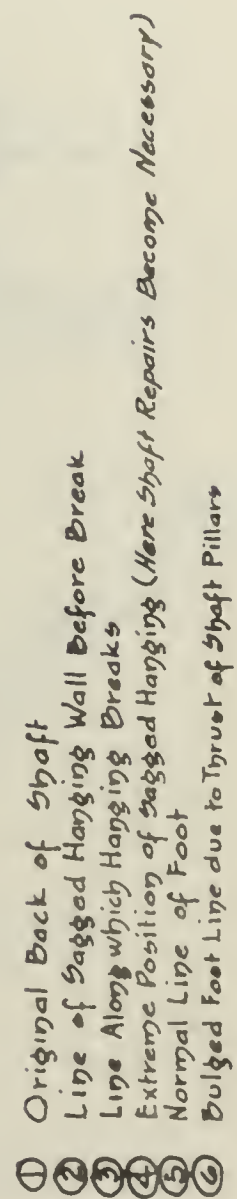 ① Original Back of Shaft
② Line of Sagged Hanging Wall Before Break
③ Line Along which Hanging Breaks
④ Extreme Position of Sagged Hanging (Here Shaft Repairs Become Necessary)
⑤ Normal Line of Foot
⑥ Bulged Foot Line due to Thrust of Shaft Pillars